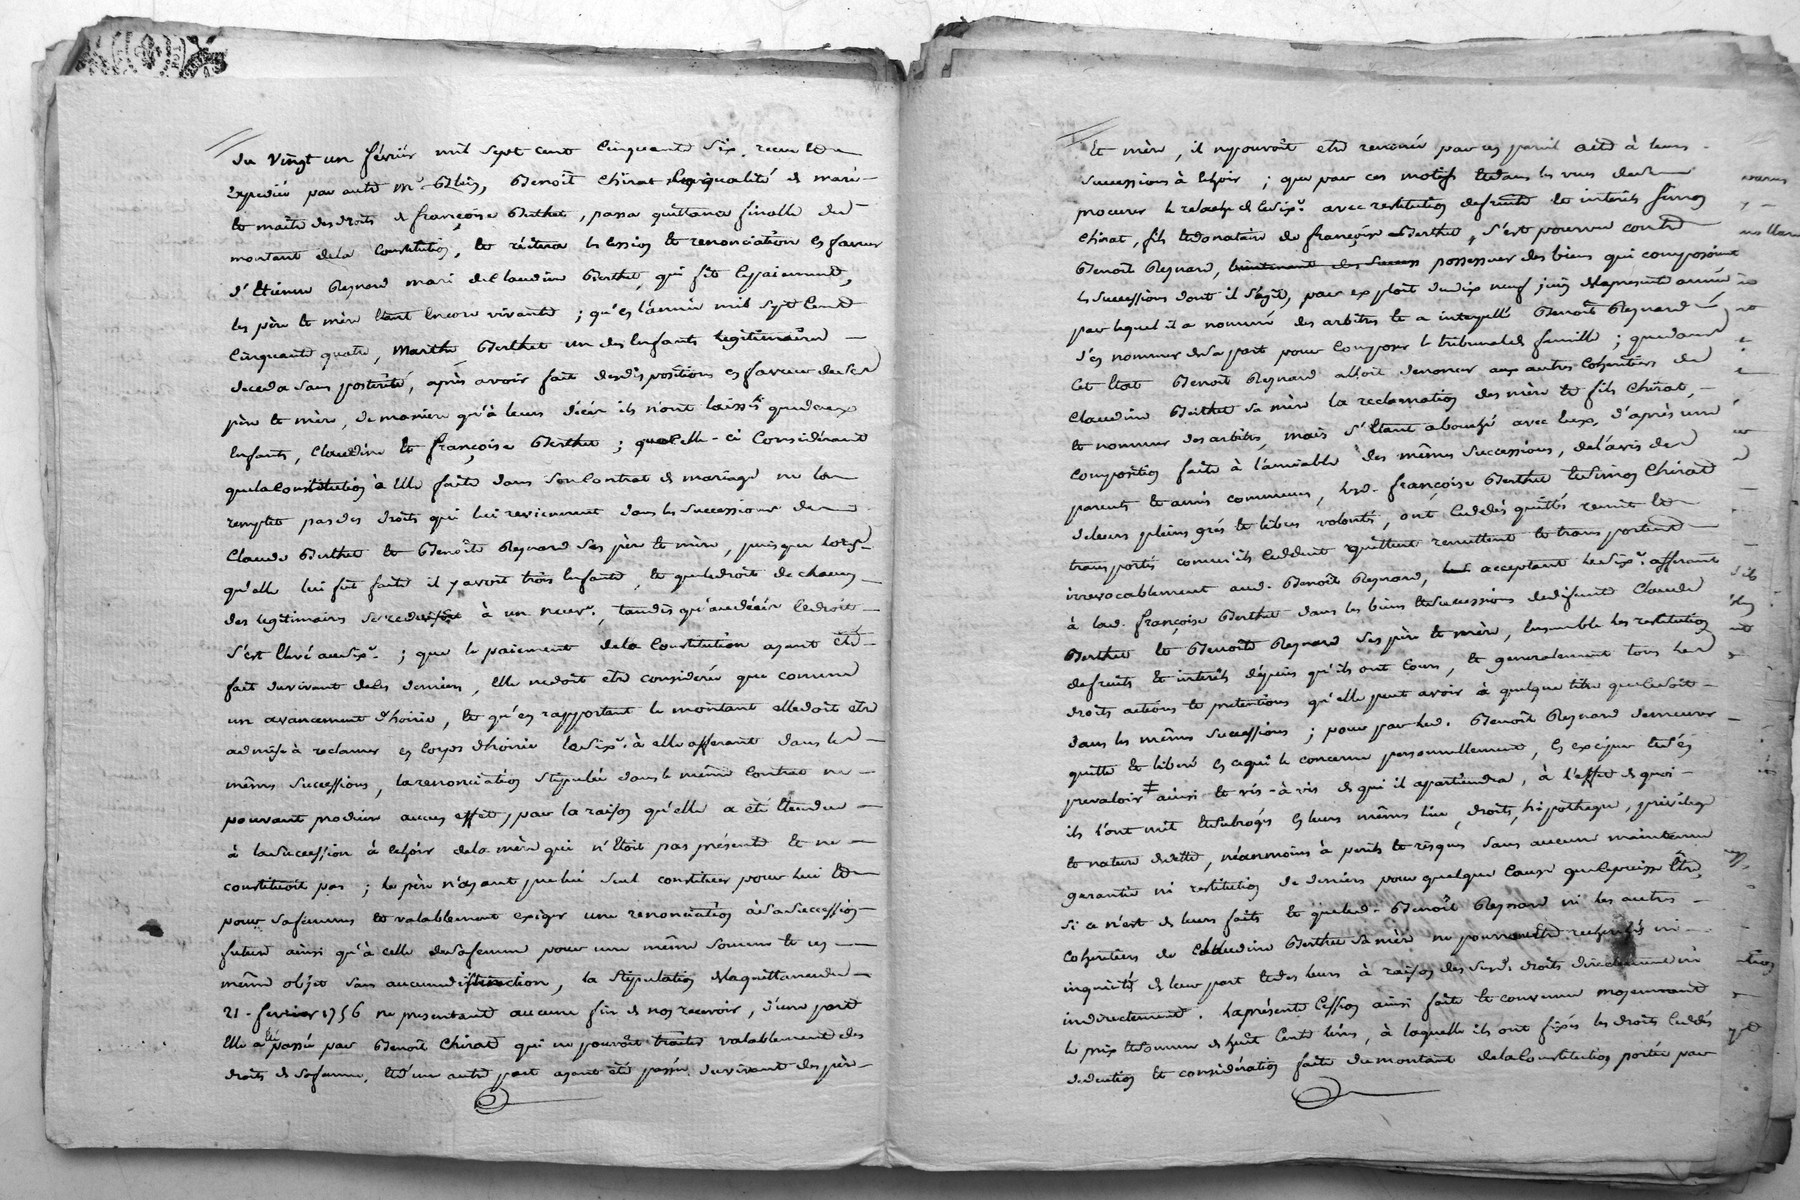 du vingt un février mil sept cent cinquante six, recu et
expedié par autre me Blein, Benoît Chirat en qualité de mari
et maître des droits de françoise Berthet, passa quittance finalle du
montant de la constitution, et réitera la cession et renonciation en faveur
d'Etienne Reynard mari de Claudine Berthet, qui fit le paiement,
les père et mère étant encore vivants ; qu'en l'année mil sept cent
cinquante quatre, Marthe Berthet un des enfants legitimaires
deceda sans posterité, après avoir fait des dispositions en faveur de ses
père et mère, de maniere qu'à leurs décès ils n'ont laissés que deux
enfants, Claudine et françoise Berthet ; que celle-ci considérant
que la constitution à elle faite dans son contrat de mariage ne la
remplit pas des droits qui lui reviennent dans les successions de
Claude Berthet et Benoîte Reynard ses père et mère, puisque lors
qu'elle lui fut faite il y avoit trois enfants, et que le droit de chacun
des legitimaires se reduisoit à un neuve. tandis qu'au décès le droit
s'est élevé au sixe. ; que le paiement de la constitution ayant été
fait du vivant de ces derniers, elle ne doit etre considerée que comme
un avancement d'hoirie, et qu'en rapportant le montant elle doit être
admise à reclamer en corps d'hoirie le sixe. à elle afferant dans les
mêmes successions, la renonciation stipulée dans le même contrat ne
pouvant produire aucun effet, par la raison qu'elle a été étendue
à la succession à echoir de la mère qui n'étoit pas présente et ne
constituoit pas ; le père n'ayant pu lui seul constituer pour lui et
pour sa femme et valablement exiger une renonciation à sa succession
future ainsi qu'à celle de sa femme pour une même somme et un
même objet sans aucune distinction, la stipulation de la quittance du
21. fevrier 1756 ne presentant aucune fin de non recevoir, d'une part
elle a été passée par Benoît Chirat qui ne pouvoit traiter valablement des
droits de sa femme, et d'une autre part ayant été passée du vivant des père
et mère, il ne pouvoit etre renoncé par un pareil acte à leurs
successions à echoir ; que par ces motifs et dans les vues de se
procurer le relache de le sixe. avec restitution de fruits et intérêts Simon
Chirat, fils et donataire de françoise Berthet, s'est pourvu contre
Benoît Reynard, possesseur des biens qui composoient
les successions dont il s'agit, par exploit du dix neuf juin de la presente année
par lequel il a nommé des arbitres et a interpellé Benoît Reynard
d'en nommer de sa part pour composer le tribunal de famille ; que dans
cet etat Benoît Reynard alloit denoncer aux autres cohéritiers de
Claudine Berthet sa mère la reclamation des mère et fils Chirat,
et nommer des arbitres, mais s'étant abouché avec eux, d'après une
composition faite à l'amiable des mêmes successions, de l'avis de
parents et amis communs, lesd. françoise Berthet et Simon Chirat
de leurs pleins grés et libres volontés, ont cedés quittés remit et
transportés comm'ils cedent quittent remettent et transportent
irrevocablement aud. Benoît Reynard, acceptant le sixe. afferant
à lad. françoise Berthet dans les biens et successions des défunts Claude
Berthet et Benoîte Reynard ses père et mère, ensemble les restitution
de fruits et intérêts depuis qu'ils ont cours, et generalement tous les
droits actions et pretentions qu'elle peut avoir à quelque titre que ce soit
dans les mêmes successions ; pour par led. Benoît Reynard demeurer
quitte et liberé en ce qui le concerne personnellement, en exciper et s'en
prevaloir ainsi et vis-à-vis de qui il appartiendra, à l'effet de quoi
ils l'ont mit et subrogés en leurs mêmes lieu, droits, hipotheque, privilege
et nature de dette, néanmoins à perils et risques sans aucune maintenue
garantie ni restitution de deniers pour quelque cause que ce puisse être,
si ce n'est de leurs faits et que led. Benoît Reynard ni les autres
cohéritiers de Claudine Berthet sa mère ne pourront etre recherchés ni
inquietés de leur part et des leurs à raison des susd. droits directement ni
indirectement. la présente cession ainsi faite et convenue moyennant
le prix et somme de huit cent livres, à laquelle ils ont fixés les droits cedés
deduction et considération faite du montant de la constitution portée par